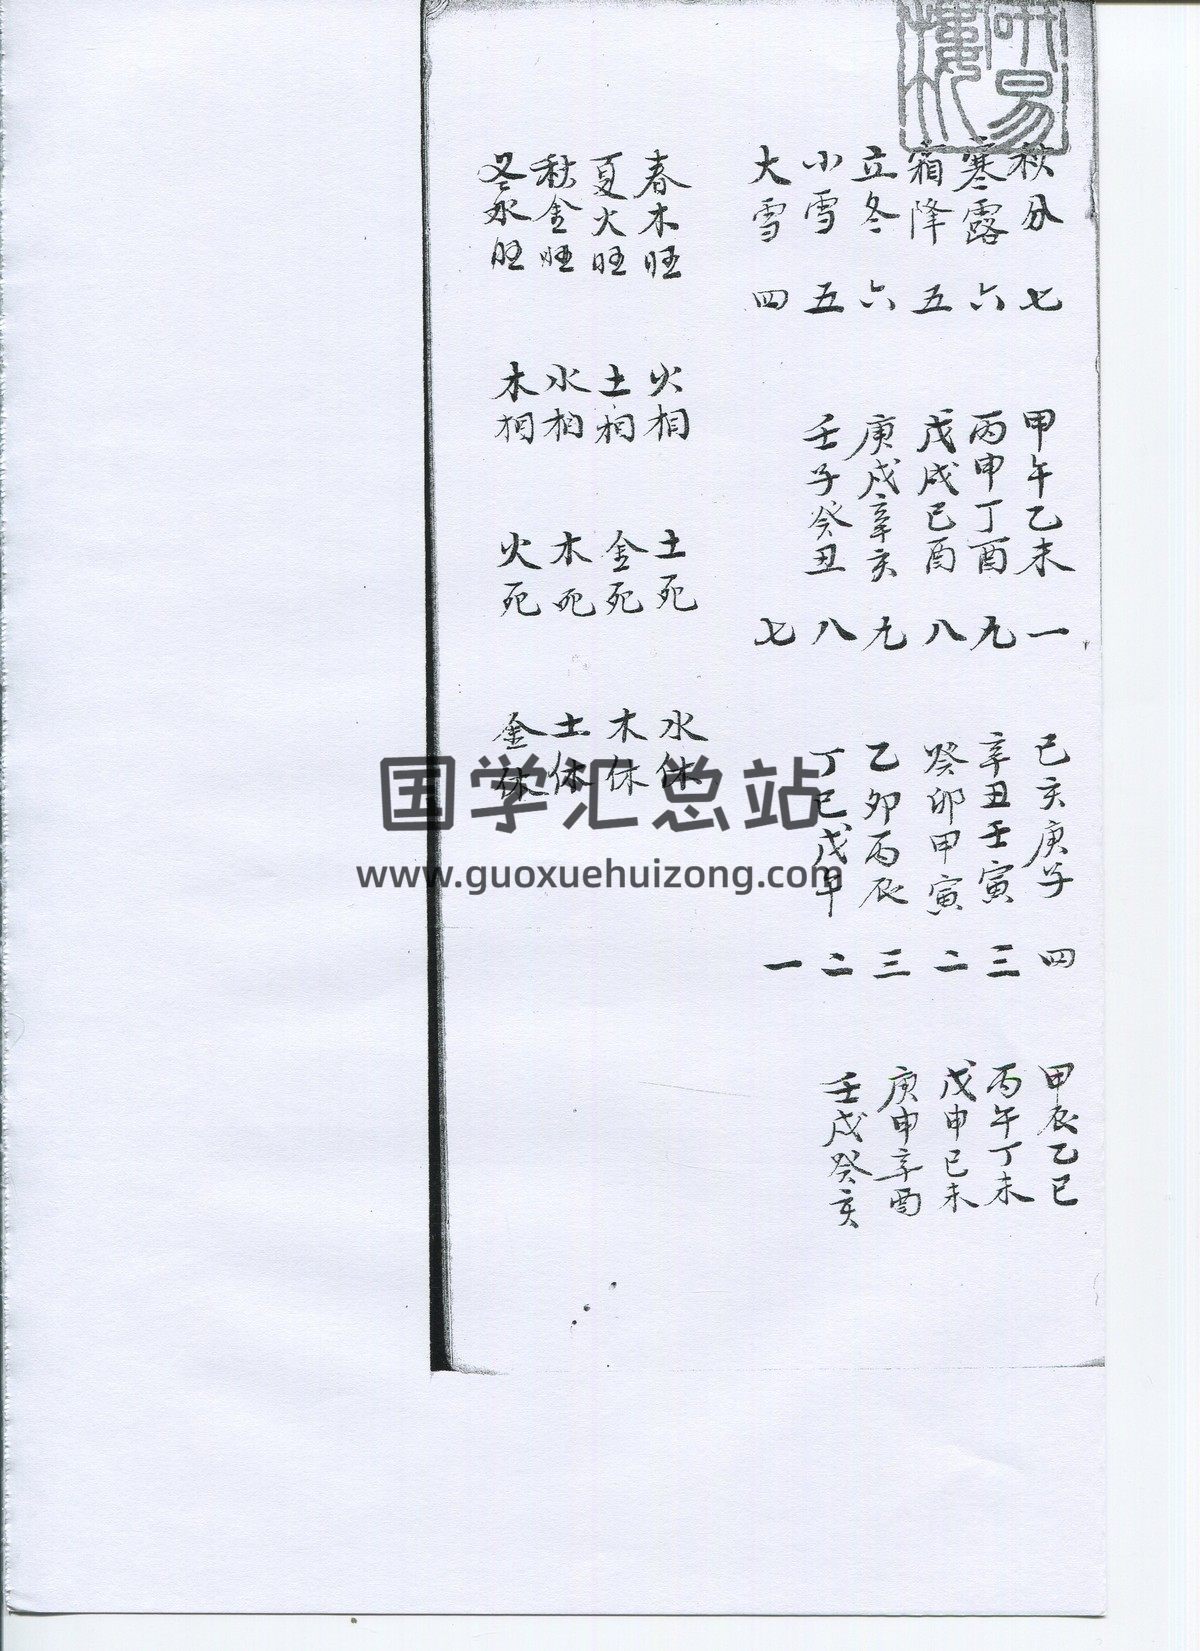 研易
楼
秋分 七 甲午乙未 一 己亥庚子 四 甲辰乙巳
寒露 六 丙申丁酉 九 辛丑壬寅 三 丙午丁未
霜降 五 戊戌己酉 八 癸卯甲寅 二 戊申己未
立冬 六 庚戌辛亥 九 乙卯丙辰 三 庚申辛酉
小雪 五 壬子癸丑 八 丁巳戊午 二 壬戌癸亥
大雪 四 七 一
春木旺 火相 土死 水休
夏火旺 土相 金死 木休
秋金旺 水相 木死 土休
冬水旺 木相 火死 金休
国学汇总站
www.guoxuehuizong.com